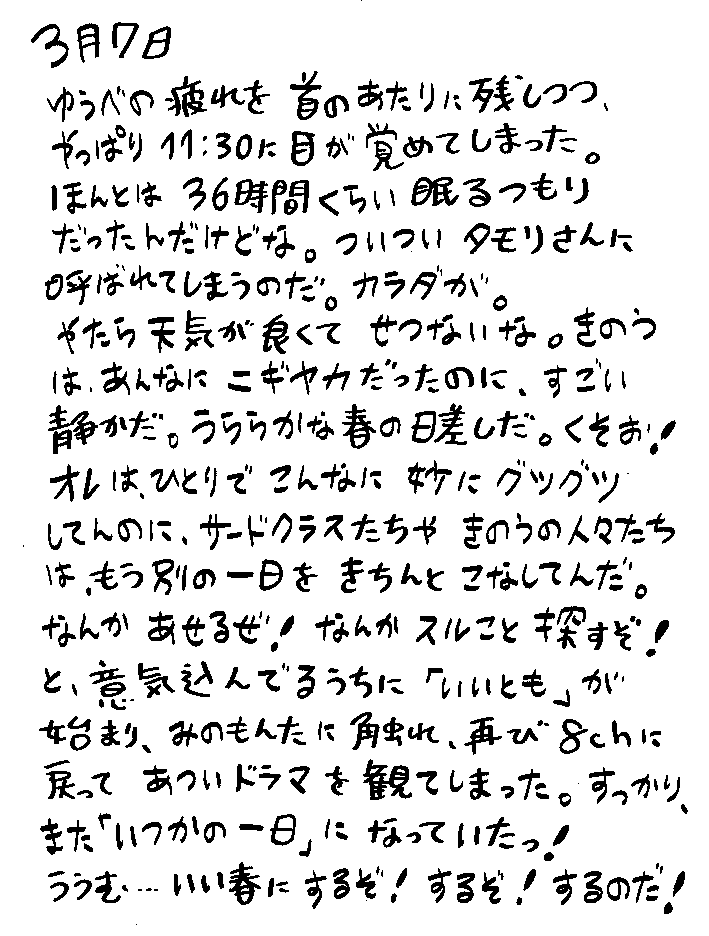 3月7日
ゆうべの疲れを 首のあたりに残しつつ、
やっぱり 11:30に目が覚めてしまった。
ほんとは 36時間くらい眠るつもり
だったんだけどな。ついつい タモリさんに
呼ばれてしまうのだ。カラダが。
やたら天気が良くて せつないな。きのう
は、あんなに ニギヤカだったのに、すごい
静かだ。うららかな春の日差しだ。くそお!
オレは、ひとりで こんなに 妙に グツグツ
してんのに、サードクラスたちや きのうの人々たち
は、もう別の一日を きちんと こなしてんだ。
なんか あせるぜ! なんか スルこと 探すぞ!
と、意気込んでるうちに「いいとも」が
始まり、みのもんたに触れ、再び 8chに
戻って あついドラマを観てしまった。すっかり、
また「いつかの一日」に なっていたっ!
ううむ…いい春に するぞ! するぞ! するのだ!